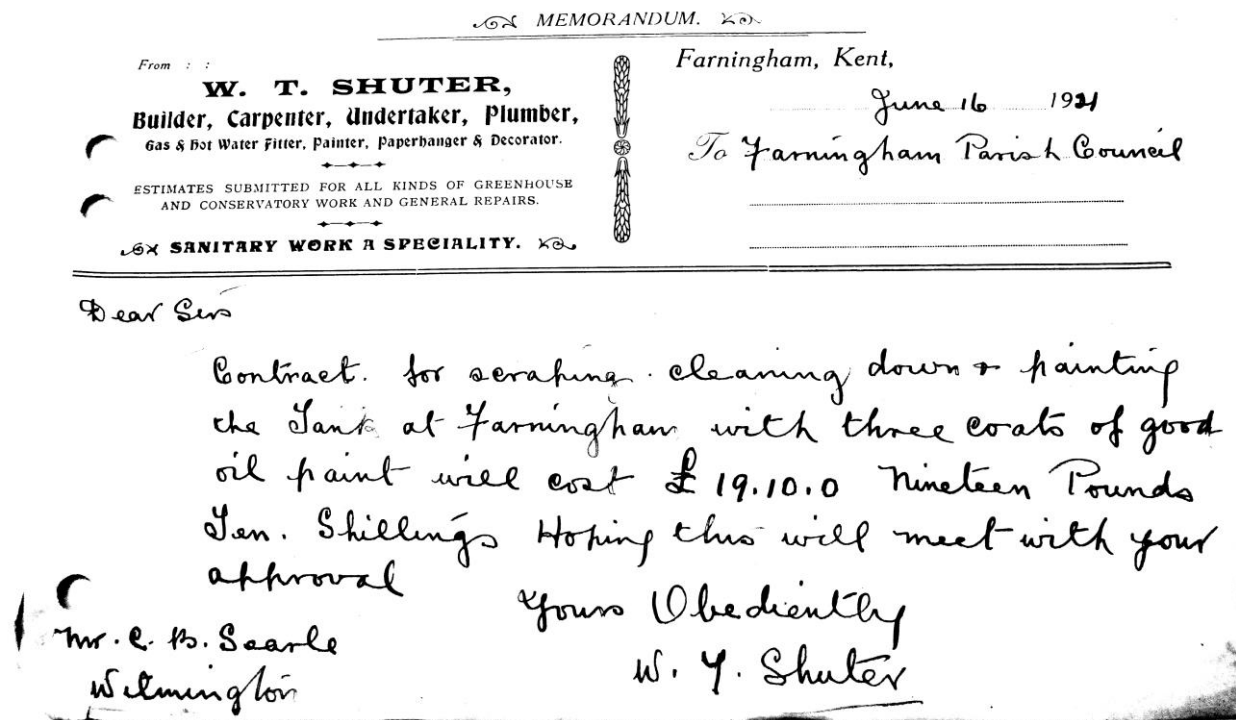 MEMORANDUM.
From : :
W. T. SHUTER,
Builder, Carpenter, Undertaker, Plumber,
Gas & Hot Water Fitter, Painter, Paperhanger & Decorator.
ESTIMATES SUBMITTED FOR ALL KINDS OF GREENHOUSE
AND CONSERVATORY WORK AND GENERAL REPAIRS.
SANITARY WORK A SPECIALITY.
Farningham, Kent,
June 16 1921
To Farningham Parish Council
Dear Sirs
Contract. for scraping. cleaning down & painting
the Tank at Farningham with three coats of good
oil paint will cost £ 19.10.0 Nineteen Pounds
Ten. Shillings Hoping this will meet with your
approval
Yours Obediently
W. T. Shuter
Mr. C. B. Searle
Wilmington